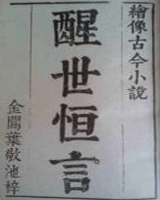 繪像古今小說
醒世恒言
金閶葉敬池梓